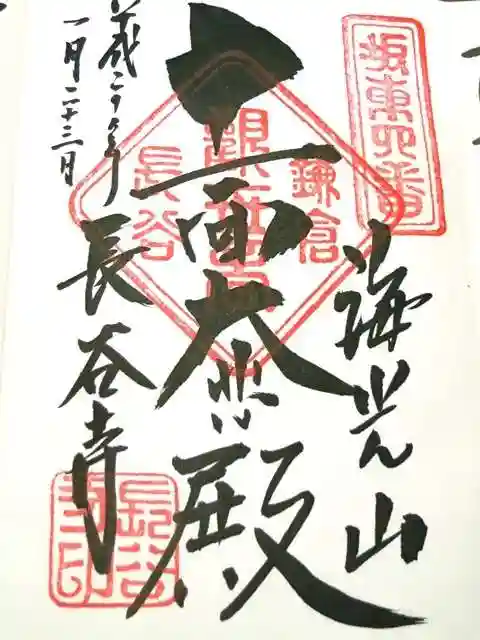 坂東四番
海光山
十一面大悲殿
鎌倉
観世音
長谷
長谷寺
一月二十三日
長谷寺印